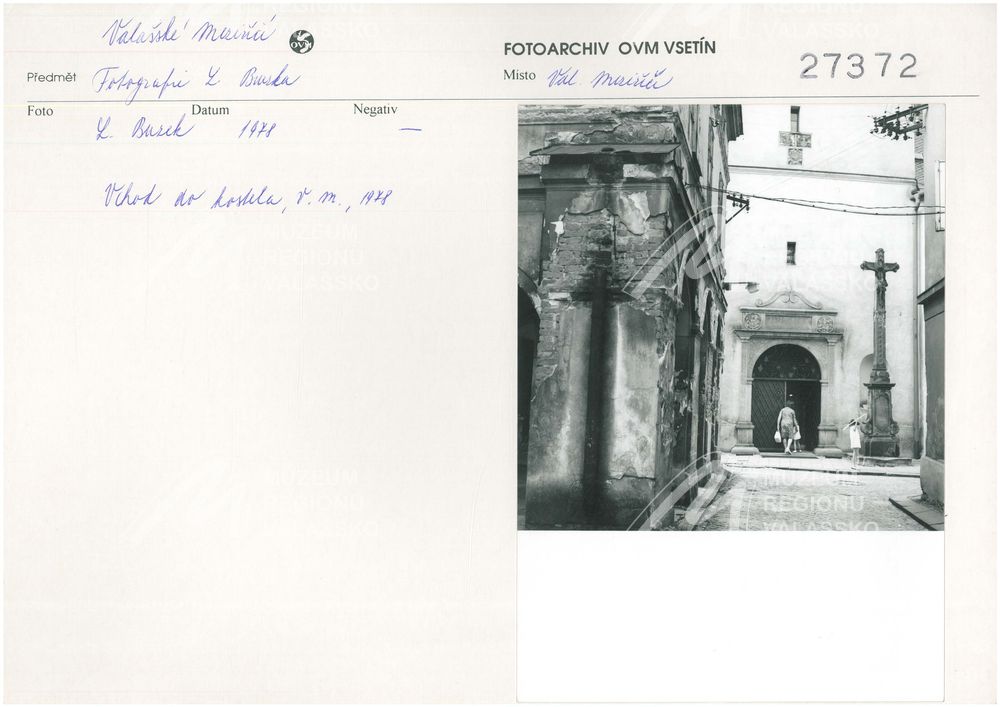 Valašské Meziříčí
OVM
FOTOARCHIV OVM VSETÍN
27372
Předmět Fotografie L. Burska
Místo Val. Meziříčí
Foto Datum Negativ
L. Bursk 1978 —
Vchod do kostela, v. m., 1978
MUZEUM
REGIONU
VALAŠSKO
MUZEUM
REGIONU
VALAŠSKO
MUZEUM
REGIONU
VALAŠSKO